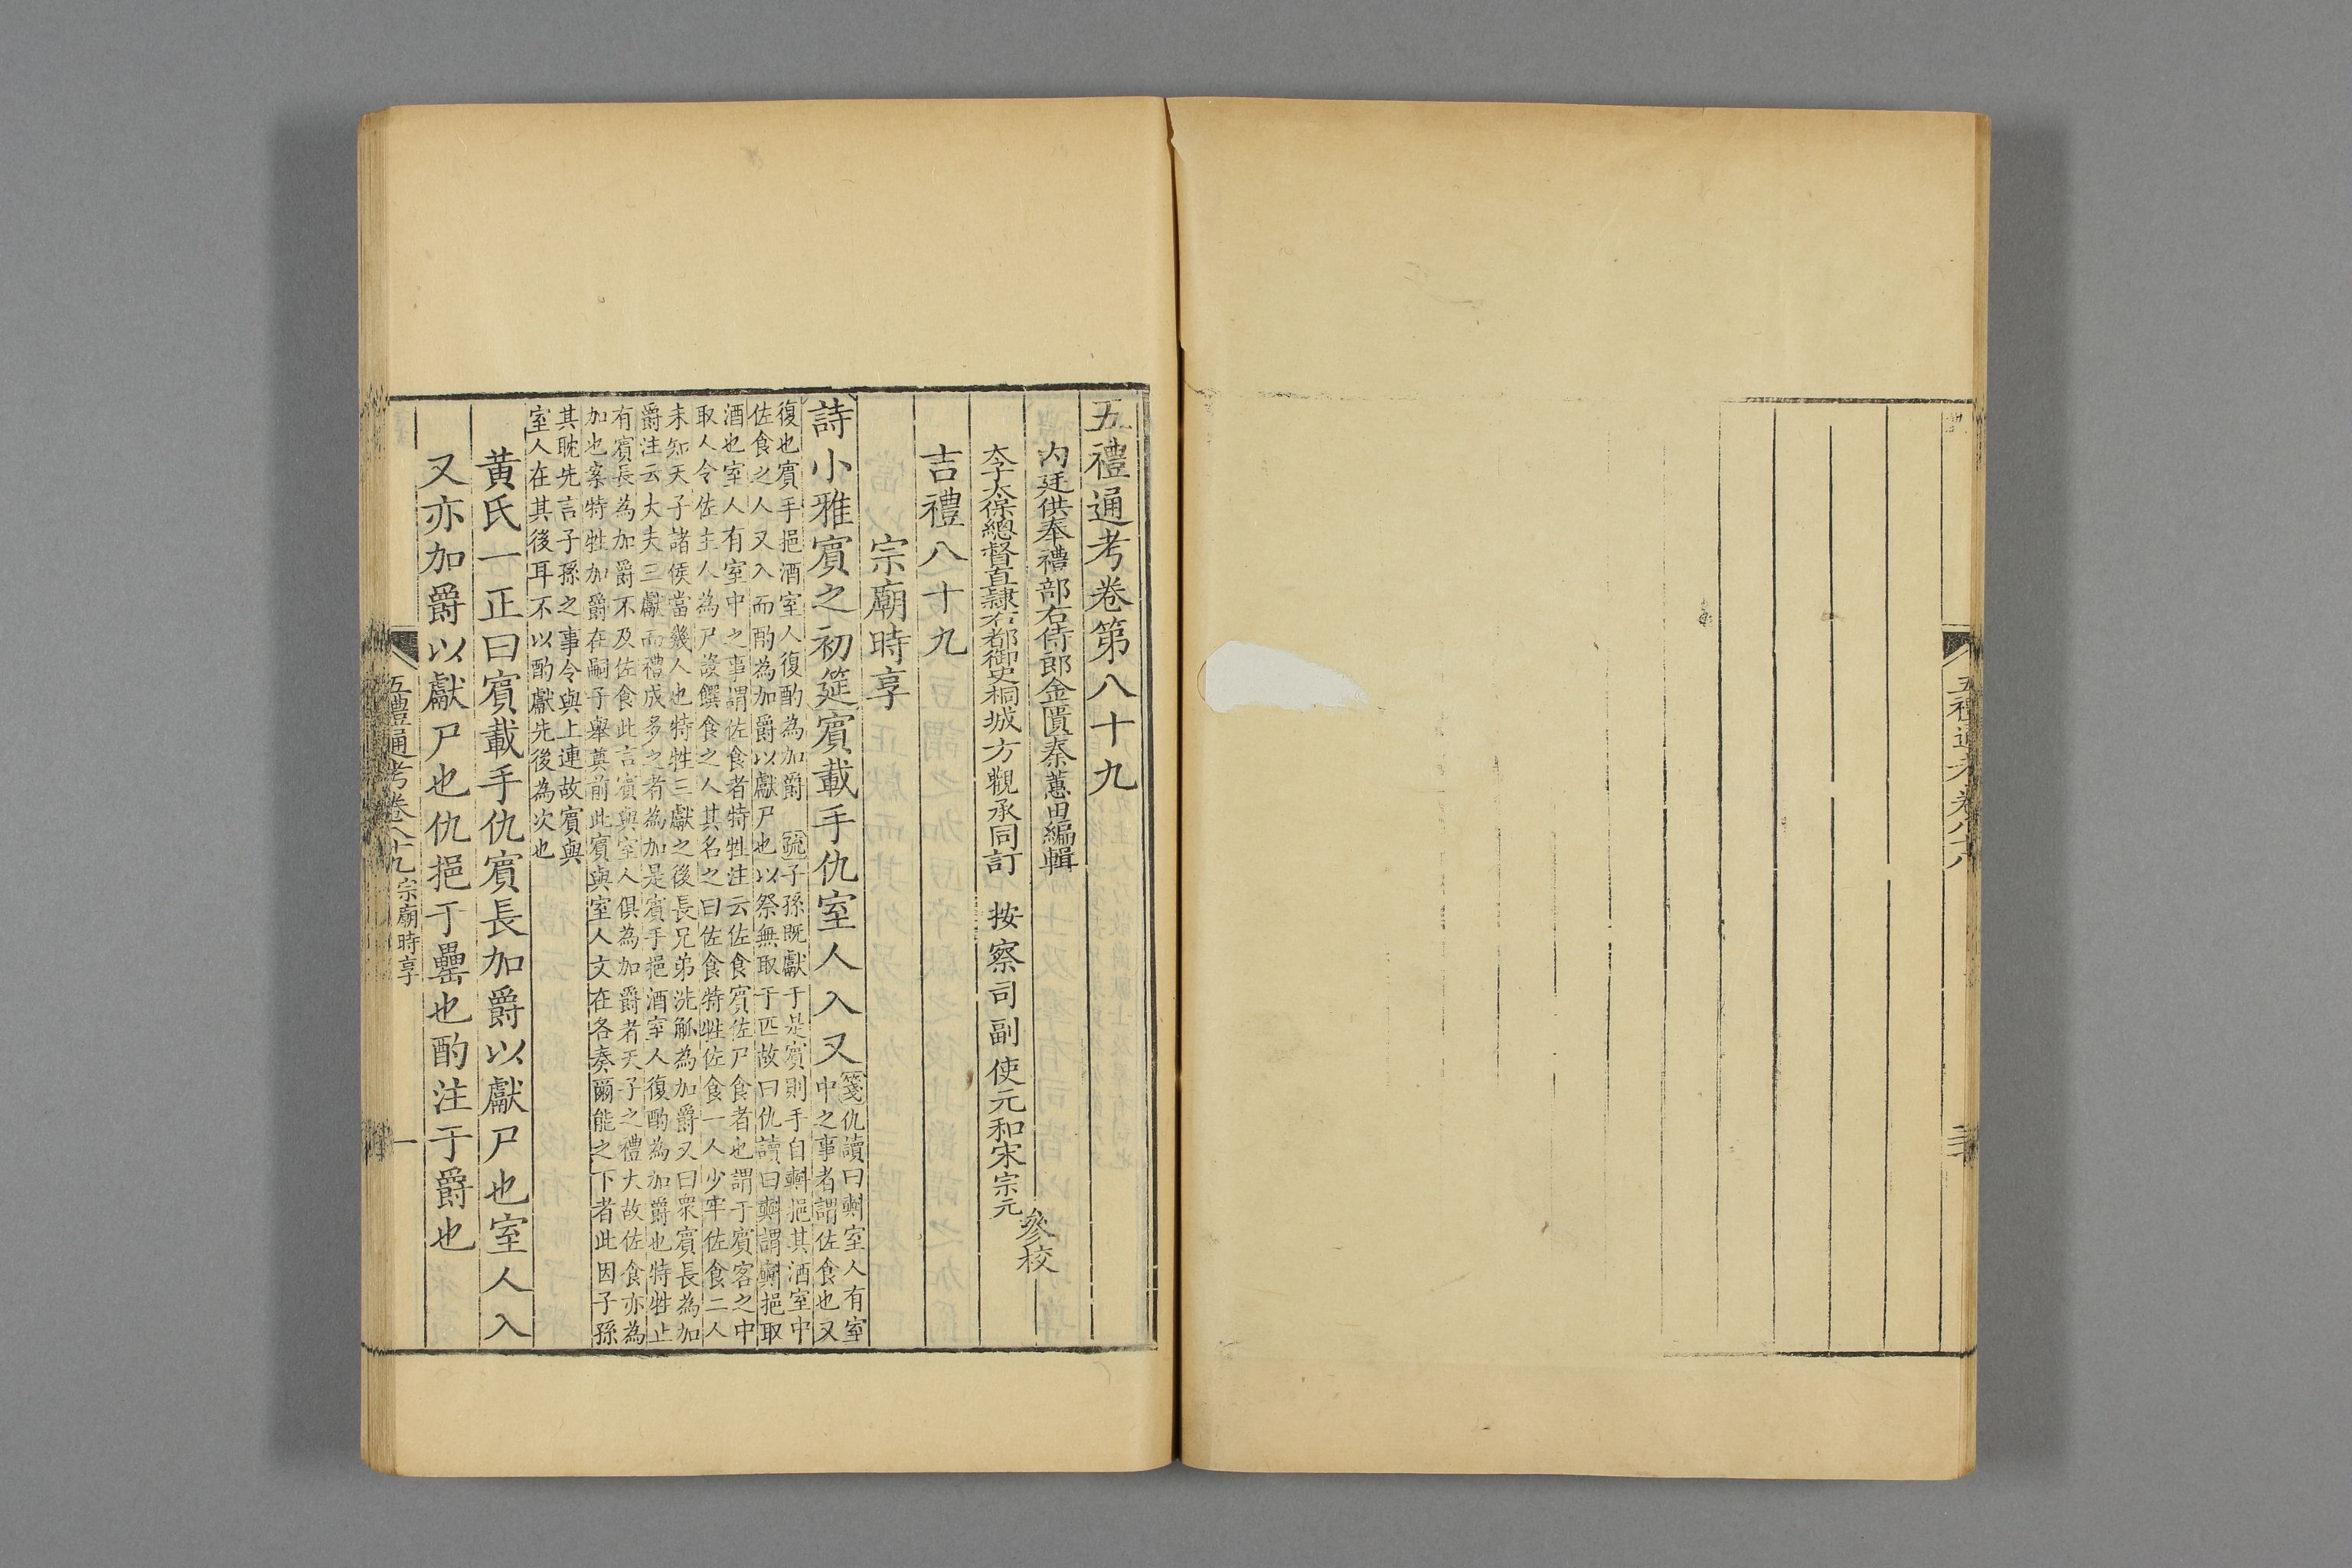 五禮通考卷八十八
五禮通考卷第八十九
內廷供奉禮部右侍郎金匱秦蕙田編輯
太子太保總督直隸右都御史桐城方觀承同訂 按察司副使元和宋宗元
參校
吉禮八十九
宗廟時享
詩小雅賓之初筵賓載手仇室人入又
箋仇讀曰𣂏室人有室
中之事者謂佐食也又
復也賓手挹酒室人復酌為加爵 疏子孫既獻于是賓則手自𣂏挹其酒室中
佐食之人又入而酌為加爵以獻尸也以祭無取于匹故曰仇讀曰𣂏謂𣂏挹取
酒也室人有室中之事謂佐食者特牲注云佐食賓佐尸食者也謂于賓客之中
取人令佐主人為尸設饌食之人其名之曰佐食特牲佐食一人少牢佐食二人
未知天子諸侯當幾人也特牲三獻之後長兄弟洗觚為加爵又曰衆賓長為加
爵注云大夫三獻而禮成多之者為加是賓手挹酒室人復酌為加爵也特牲止
有賓長為加爵不及佐食此言賓與室人俱為加爵者天子之禮大故佐食亦為
加也案特牲加爵在嗣子舉奠前此賓與室人文在各奏爾能之下者此因子孫
其耽先言子孫之事令與上連故賓與
室人在其後耳不以酌獻先後為次也
黃氏一正曰賓載手仇賓長加爵以獻尸也室人入
又亦加爵以獻尸也仇挹于罍也酌注于爵也
五禮通考卷八十九 宗廟時享 一